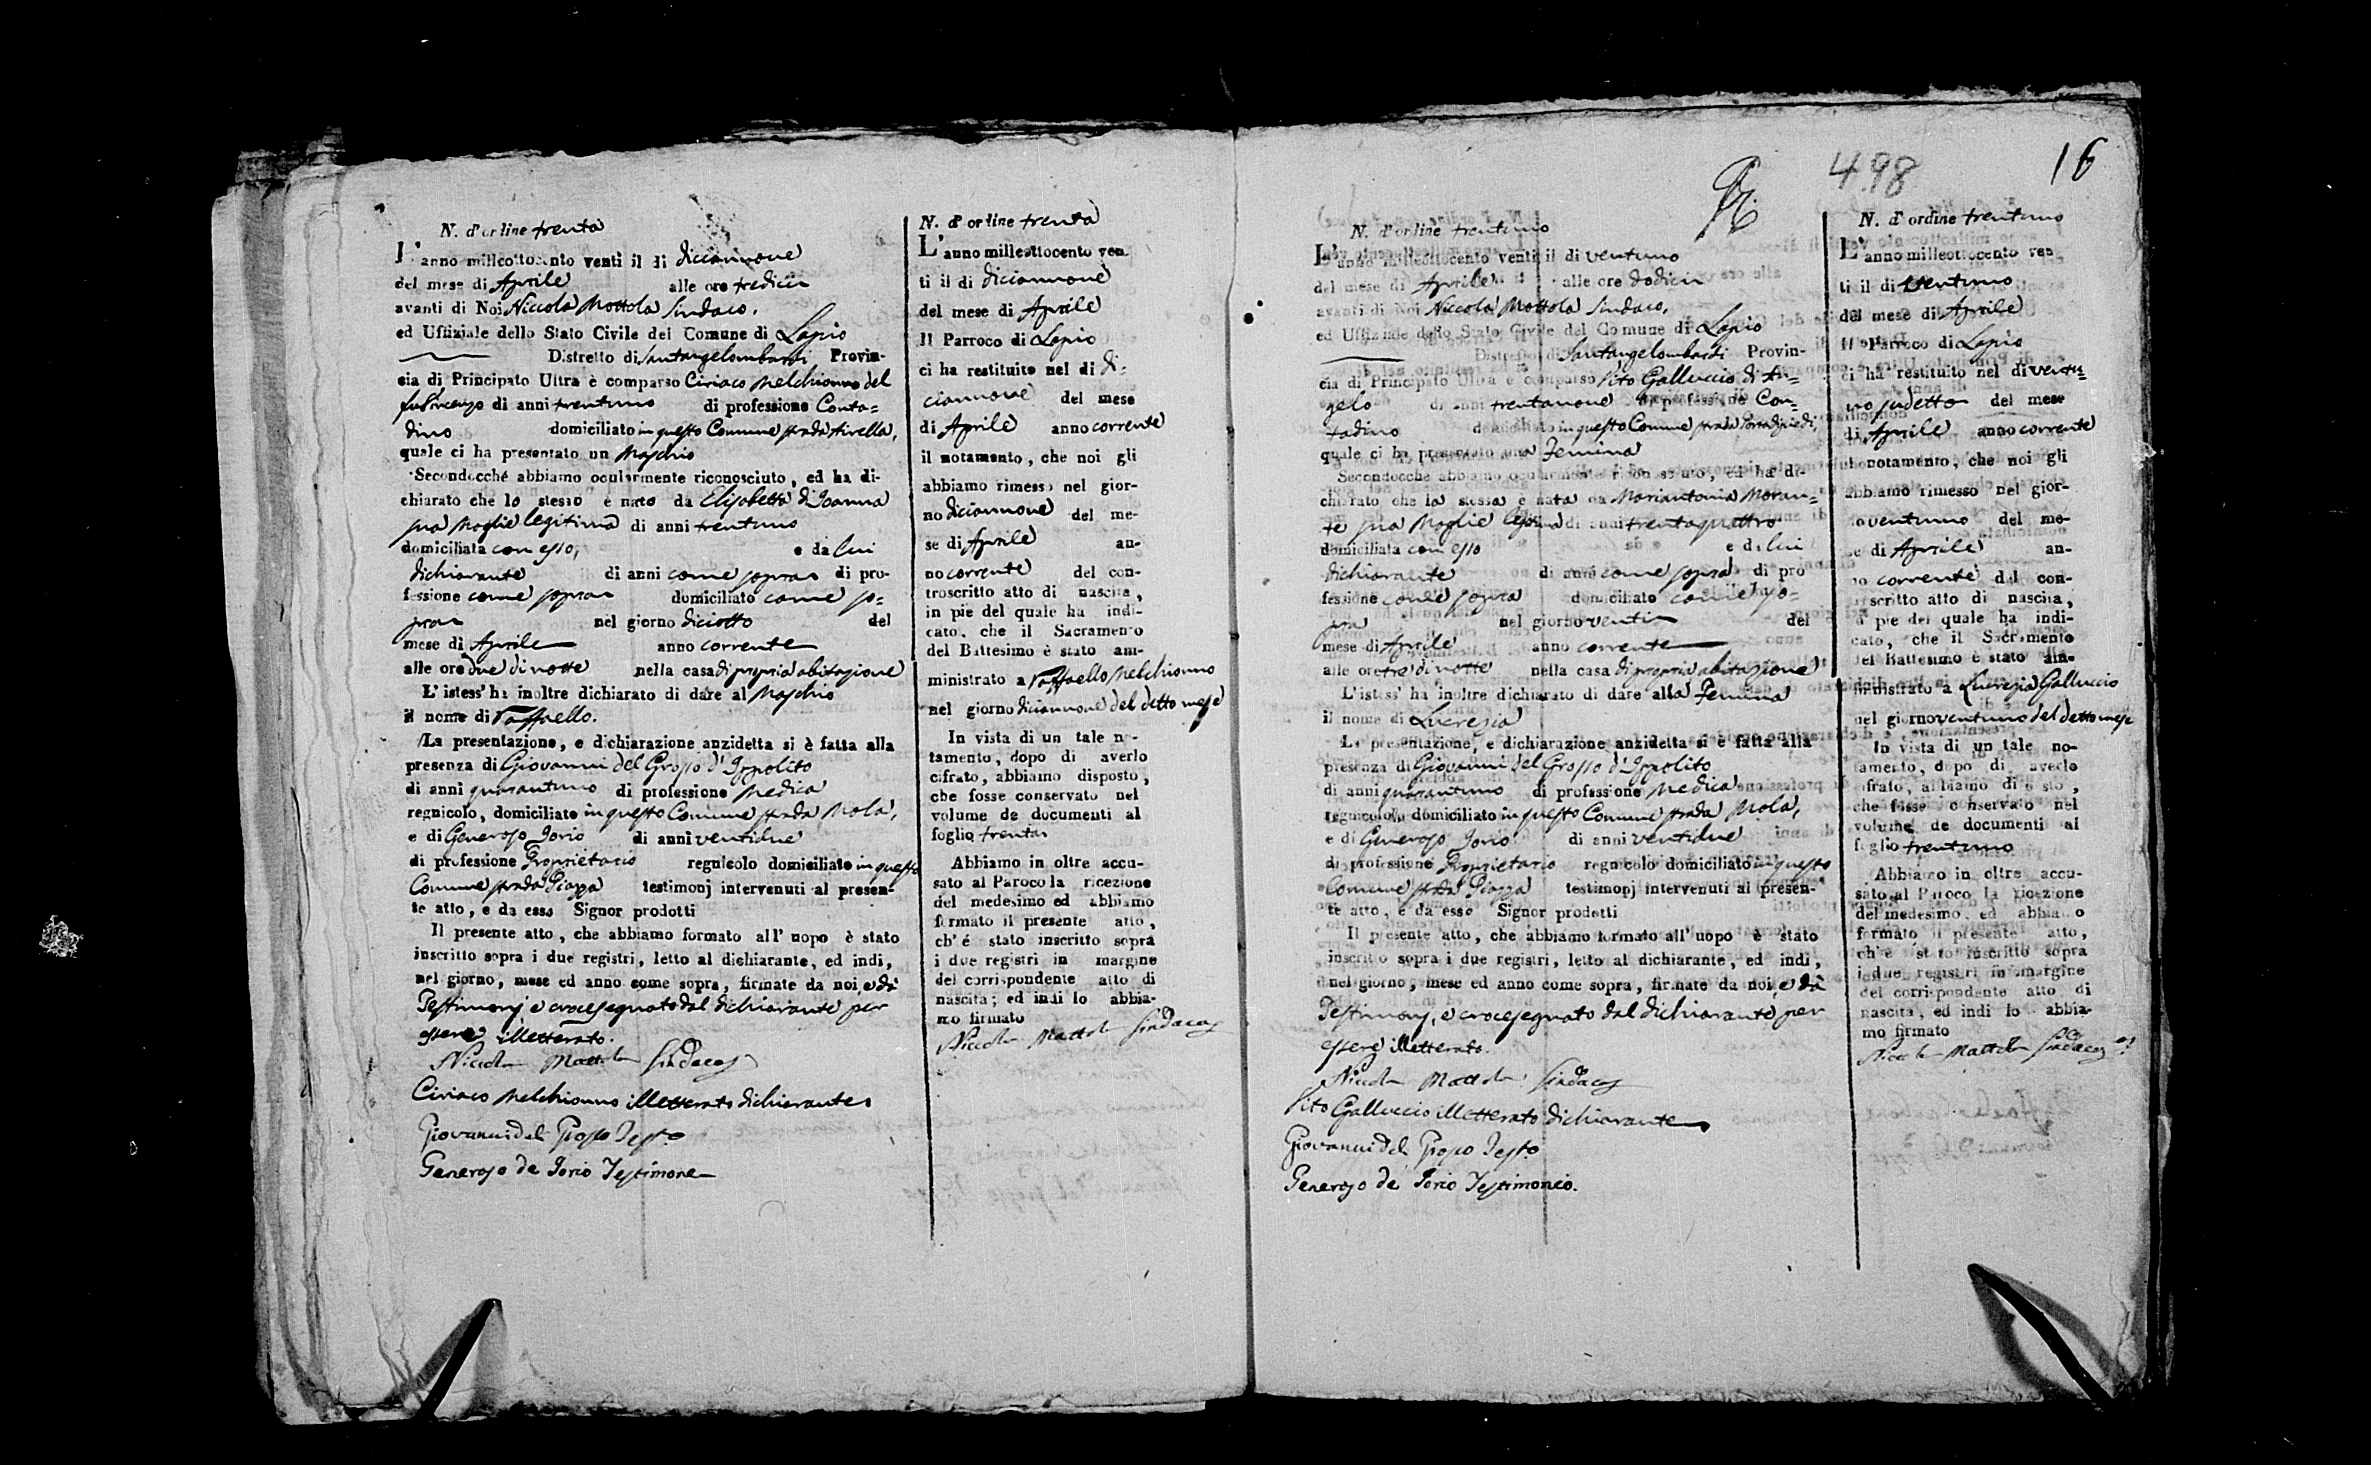 N. d'ordine trenta
L'anno milleottocento venti il di diciannove
del mese di Aprile alle ore tredici
avanti di Noi Niccola Mottola Sindaco,
ed Uffiziale dello Stato Civile del Comune di Lapio
Distretto di Santangelombardi Provin-
cia di Principato Ultra è comparso Ciriaco Melchionno del
fu Vincenzo di anni trentuno di professione Conta=
dino domiciliato in questo Comune strada
quale ci ha presentato un Maschio
Secondocché abbiamo ocularmente riconosciuto, ed ha di-
chiarato che lo stesso è nato da Elisabetta di Joanna
sua Moglie legitima di anni trentuno
domiciliata con esso, e da lui
dichiarante di anni come sopra di pro-
fessione come sopra domiciliato come so=
pra nel giorno diciotto del
mese di Aprile anno corrente
alle ore due di notte nella casa di propria abitazione
L'istess' ha inoltre dichiarato di dare al Maschio
il nome di Raffaello.
La presentazione, e dichiarazione anzidetta si è fatta alla
presenza di Giovanni del Grosso d'Ippolito
di anni quarantuno di professione Medico
regnicolo, domiciliato in questo Comune strada Mola,
e di Generoso Iorio di anni ventidue
di professione Proprietario regnicolo domiciliato in questo
Comune strada Piazza testimonj intervenuti al presen-
te atto, e da esso Signor prodotti
Il presente atto, che abbiamo formato all' uopo è stato
inscritto sopra i due registri, letto al dichiarante, ed indi,
nel giorno, mese ed anno come sopra, firmate da noi, e da
Testimonj, e crocesegnato dal dichiarante per
essere illetterato.
Niccola Mottola Sindaco
Ciriaco Melchionno illetterato dichiarante
Giovanni del Grosso Test.o
Generoso de Iorio Testimone
N. d'ordine trenta
L'anno milleottocento ven-
ti il di diciannove
del mese di Aprile
Il Parroco di Lapio
ci ha restituito nel di di=
ciannove del mese
di Aprile anno corrente
il notamento, che noi gli
abbiamo rimesso nel gior-
no diciannove del me-
se di Aprile an-
no corrente del con-
troscritto atto di nascita,
in piè del quale ha indi-
cato, che il Sacramento
del Battesimo è stato am-
ministrato a Raffaello Melchionno
nel giorno diciannove del detto mese
In vista di un tale no-
tamento, dopo di averlo
cifrato, abbiamo disposto,
che fosse conservato nel
volume de documenti al
foglio trenta
Abbiamo in oltre accu-
sato al Paroco la ricezione
del medesimo ed abbiamo
formato il presente atto,
ch' é stato inscritto sopra
i due registri in margine
del corrispondente atto di
nascita; ed indi lo abbia-
mo firmato
Niccola Mottola Sindaco
498
16
N. d'ordine trentuno
L'anno milleottocento venti il di ventuno
del mese di Aprile alle ore dodici
avanti di Noi Niccola Mottola Sindaco,
ed Uffiziale dello Stato Civile del Comune di Lapio
Distretto di Santangelombardi Provin-
cia di Principato Ultra è comparso Vito Galluccio di An=
gelo di anni trentanove di professione Con=
tadino domiciliato in questo Comune strada
quale ci ha presentato una Femina
Secondocche abbiamo ocularmente riconosciuto, ed ha di-
chiarato che la stessa è nata da Mariantonia Moran=
te sua Moglie legitima di anni trentaquattro
domiciliata con esso e da lui
dichiarante di anni come sopra di pro
fessione come sopra domiciliato come so=
pra nel giorno venti del
mese di Aprile anno corrente
alle ore tre di notte nella casa di propria abitazione
L'istess' ha inoltre dichiarato di dare alla Femina
il nome di Lucrezia
La presentazione, e dichiarazione anzidetta si è fatta alla
presenza di Giovanni del Grosso d'Ippolito
di anni quarantuno di professione Medico
regnicolo domiciliato in questo Comune strada Mola,
e di Generoso Iorio di anni ventidue
di professione Proprietario regnicolo domiciliato in questo
Comune strada Piazza testimonj intervenuti al presen-
te atto, e da esso Signor prodotti
Il presente atto, che abbiamo formato all' uopo è stato
inscritto sopra i due registri, letto al dichiarante, ed indi,
nel giorno, mese ed anno come sopra, firmate da noi, e da
Testimonj, e crocesegnato dal dichiarante per
essere illetterato.
Niccola Mottola Sindaco
Vito Galluccio illetterato dichiarante
Giovanni del Grosso Test.o
Generoso de Iorio Testimonio.
N. d'ordine trentuno
L'anno milleottocento ven
ti il di ventuno
del mese di Aprile
Il Parroco di Lapio
ci ha restituito nel di ventu=
no sudetto del mese
di Aprile anno corrente
il notamento, che noi gli
abbiamo rimesso nel gior-
no ventuno del me-
se di Aprile an-
no corrente del con-
troscritto atto di nascita,
in piè del quale ha indi-
cato, che il Sacramento
del Battesimo è stato am-
ministrato a Lucrezia Galluccio
nel giorno ventuno del detto mese
In vista di un tale no-
tamento, dopo di averlo
cifrato, abbiamo disposto,
che fosse conservato nel
volume de documenti al
foglio trentuno
Abbiamo in oltre accu-
sato al Paroco la ricezione
del medesimo, ed abbiamo
formato il presente atto,
ch' è stato inscritto sopra
i due registri in margine
del corrispondente atto di
nascita, ed indi lo abbia-
mo firmato
Niccola Mottola Sindaco